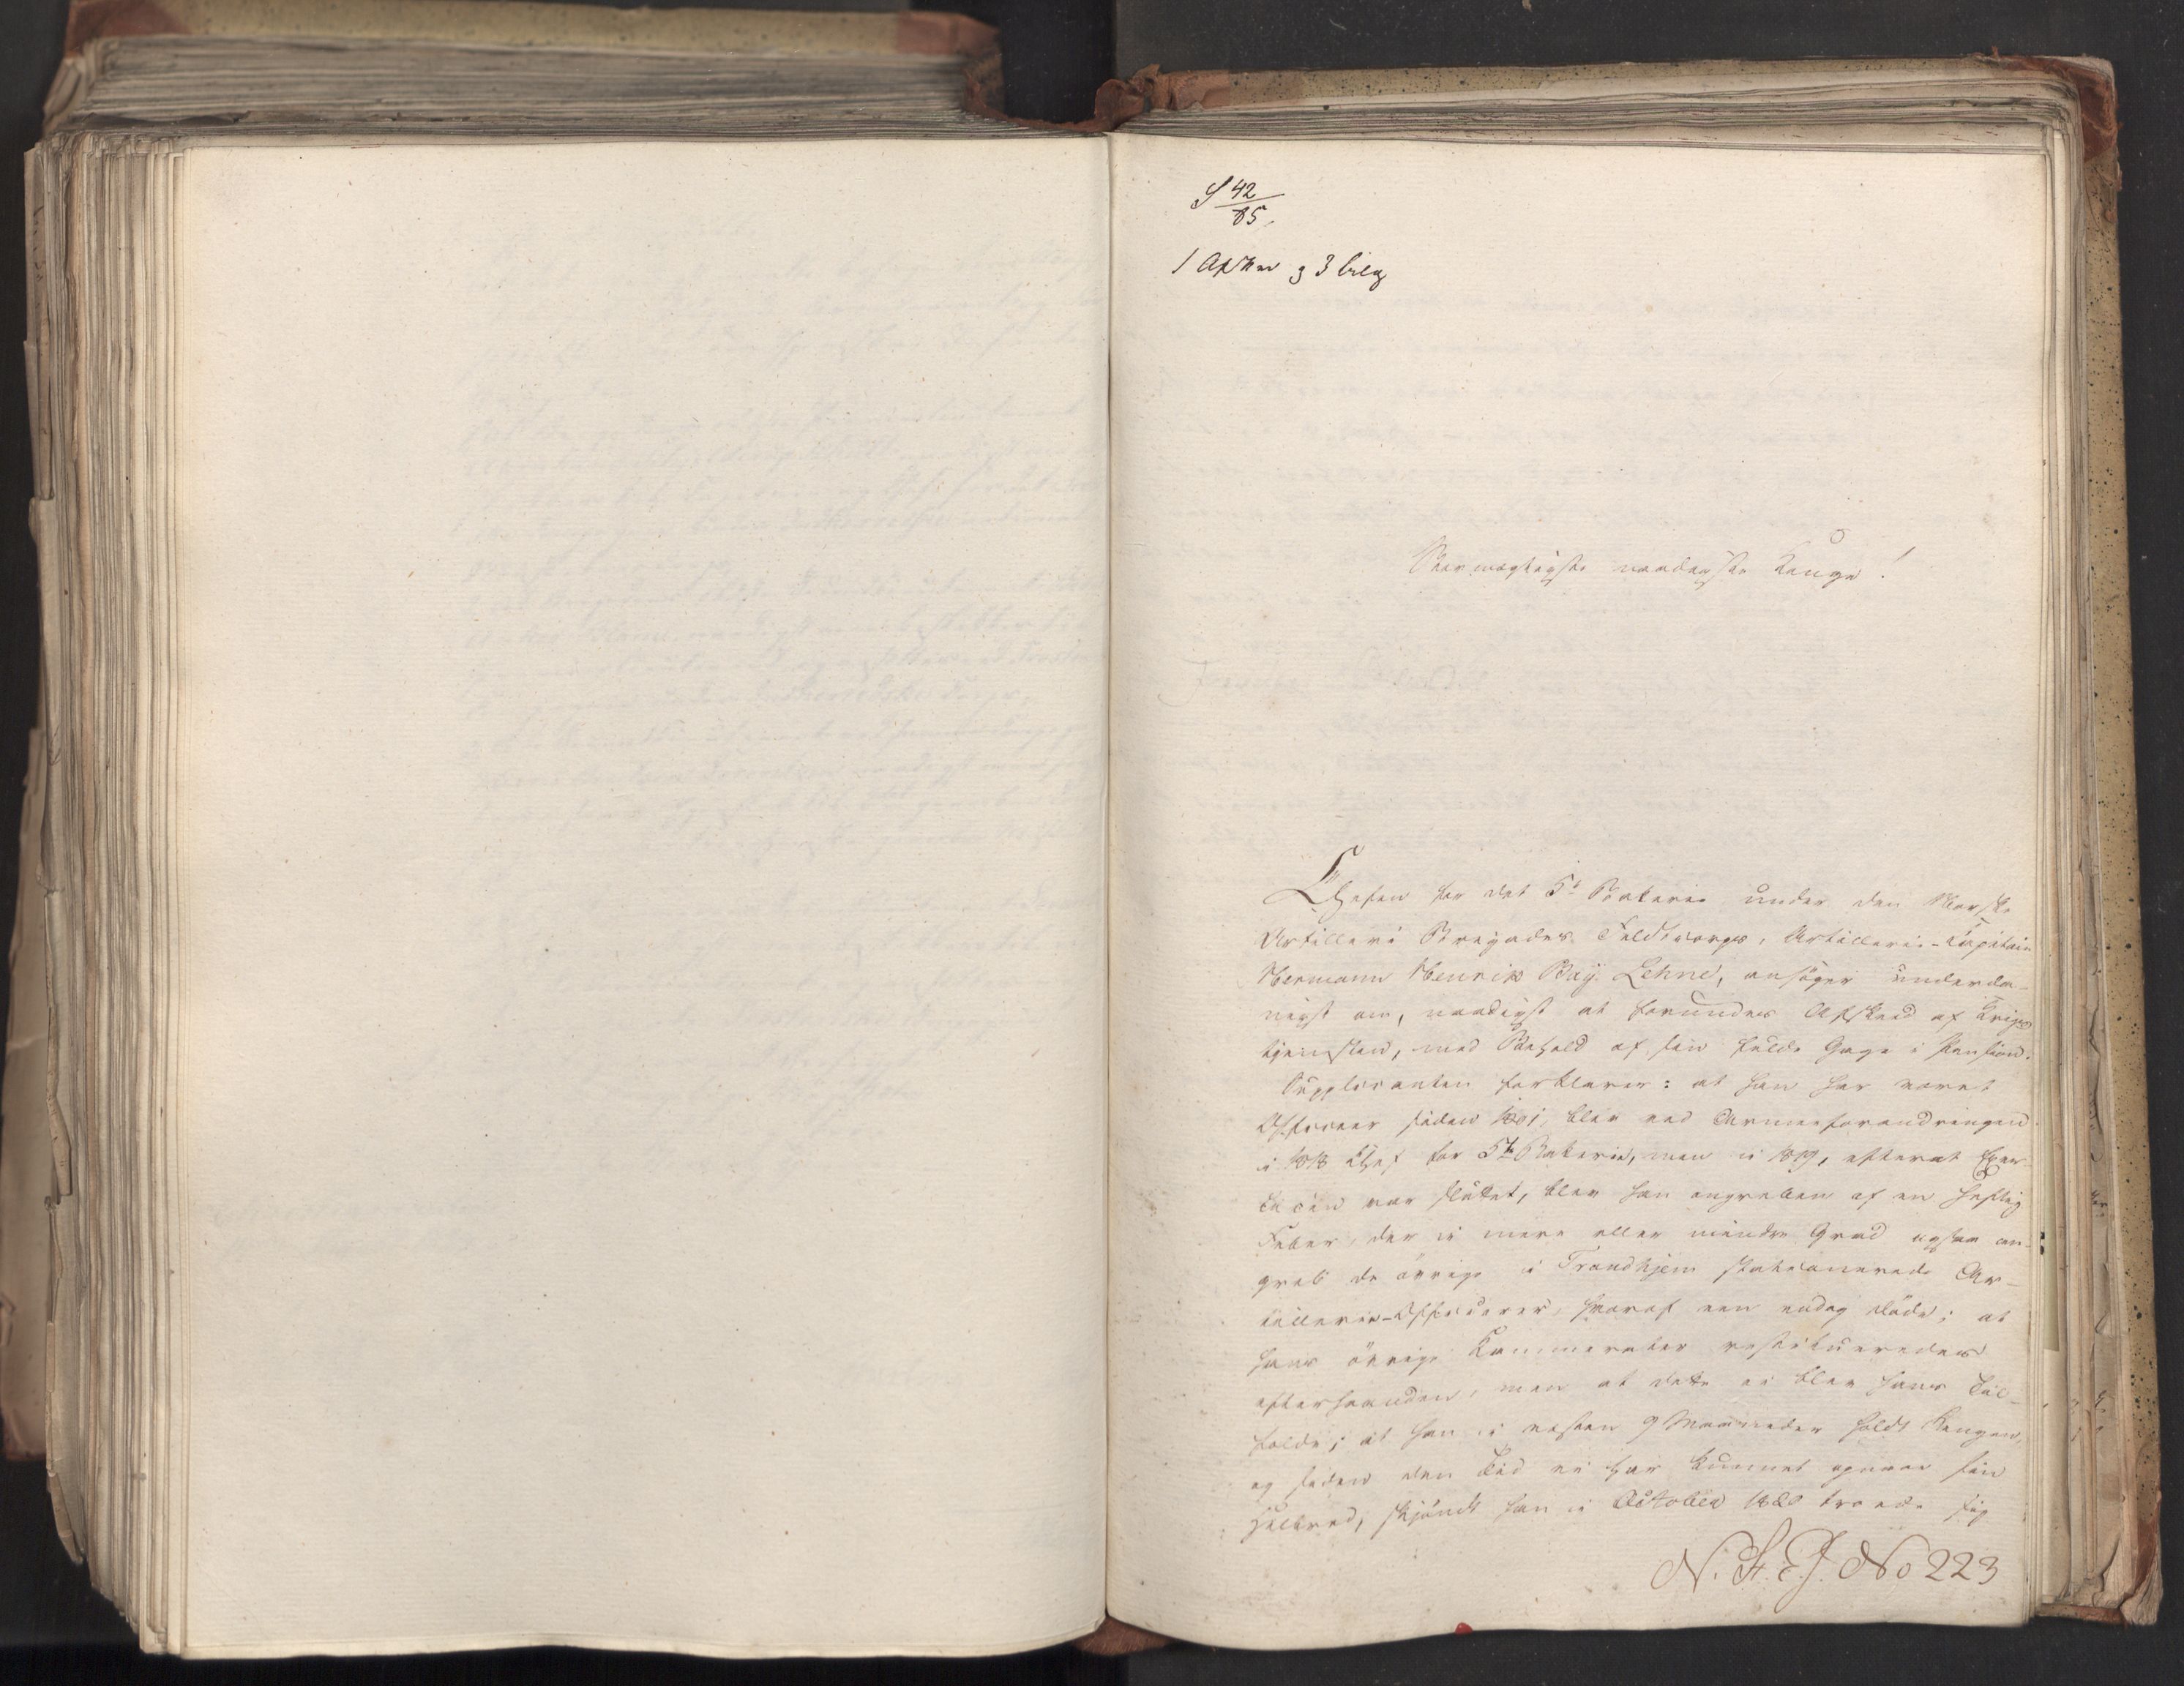 S 42/85.
1 Apther og 3 bilag
Stormægtigste naadigste Konge!
Chefen for det 5te Batterie under den Norske
Artillerie Brigades Feldtcorps, Artillerie-Capitain
Hermann Henrik Bay Lehne, ansøger underda-
nigst om, naadigst at forundes Afskeed af Krigs
tjenesten, med Beholdt af sin fulde Gage i Pension.
Supplicanten forklarer: at han har været
Officeer siden 1801, blev ved Armeeforandringen
i 1818 Chef for 5te Batterie, men i 1819, efterat Exer-
cicen var sluttet, blev han angreben af en heftig
Feber, der i mere eller mindre Grad ogsaa an-
greb de øvrige i Trondhjem stationerede Ar-
tillerie-Officerer, hvoraf een endog døde; at
hans øvrige Kammerater restitueredes
efterhaanden, men at dette ei blev hans Til-
fælde; at han i næsten 9 Maaneder holdt Sengen,
og siden den Tid ei har kunnet opnaae sin
Helbred, skjøndt han i October 1820 troede sig
N. St. E. J. No 223